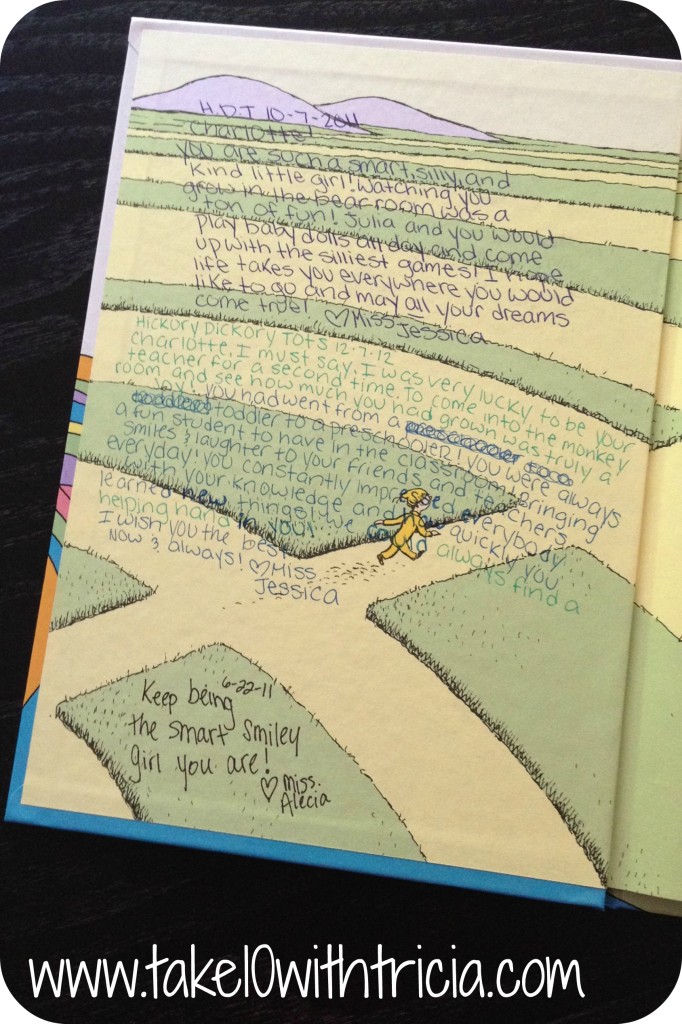 H.D.T 10-7-2011
Charlotte!
you are such a smart, silly, and
kind little girl! Watching you
grow in the bear room was a
ton of fun! Julia and you would
play baby dolls all day and come
up with the silliest games! I hope
life takes you everywhere you would
like to go and may all your dreams
come true! ♡ Miss Jessica
Hickory Dickory Tots 12-7-12
Charlotte, I must say, I was very lucky to be your
teacher for a second time. To come into the monkey
room and see how much you had grown was truly a
joy! you had went from a
toddler to a preschooler! you were always
a fun student to have in the classroom. Bringing
smiles & laughter to your friends and teachers
everyday! you constantly everybody
with your knowledge and quickly you
learned new things! we always find a
helping hand in you!
I wish you the best
now & always! ♡ Miss
Jessica
6-22-11
Keep being
the smart smiley
girl you are!
♡ Miss.
Alecia
www.take10withtricia.com